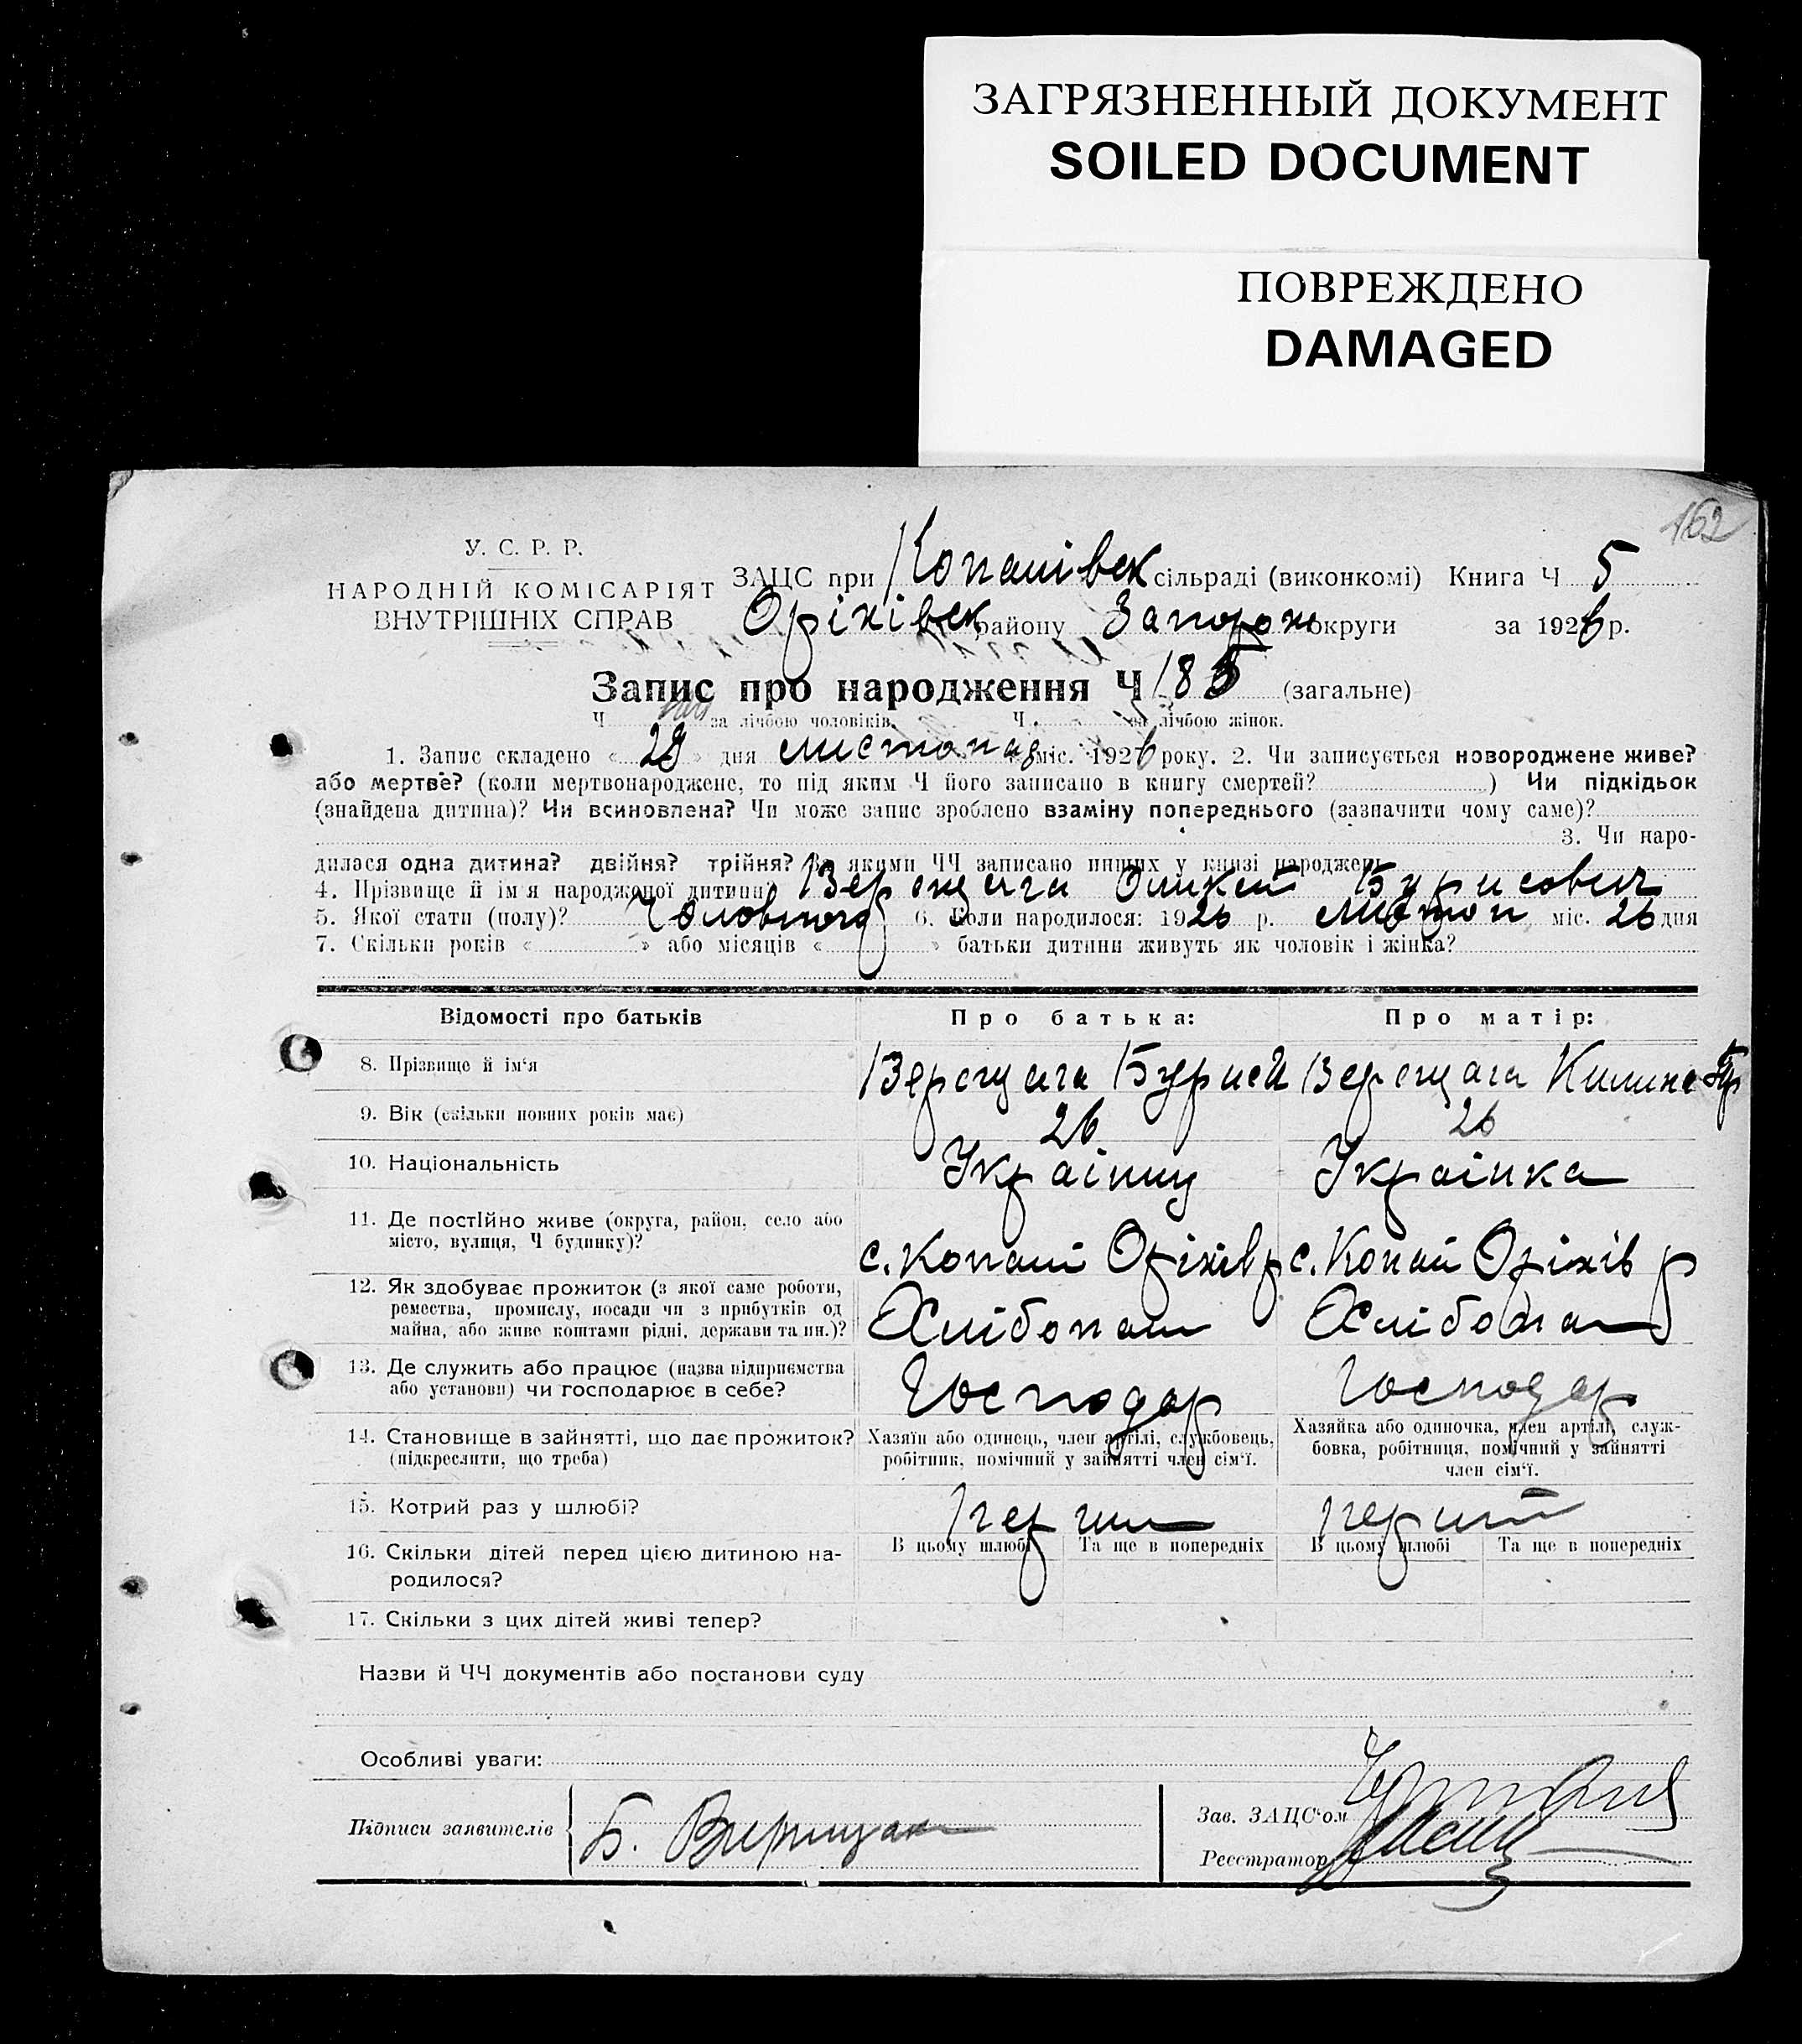 ЗАГРЯЗНЕННЫЙ ДОКУМЕНТ
SOILED DOCUMENT
ПОВРЕЖДЕНО
DAMAGED
162
У. С. Р. Р.
НАРОДНІЙ КОМІСАРІЯТ
ВНУТРІШНІХ СПРАВ
ЗАЦС при Копанівск сільраді (виконкомі) Книга Ч 5
Оріхівск району Запорож округи за 1926 р.
Запис про народження Ч 185 (загальне)
Ч за лічбою чоловіків. Ч за лічбою жінок.
1. Запис складено « 29 » дня листопад міс. 1926 року. 2. Чи записується новороджене живе?
або мертве? (коли мертвонароджене, то під яким Ч його записано в книгу смертей? ) Чи підкідьок
(знайдена дитина)? Чи всиновлена? Чи може запис зроблено взаміну попереднього (зазначити чому саме)?
3. Чи наро-
дилася одна дитина? двійня? трійня? За якими ЧЧ записано инших у книзі народжень
4. Прізвище й ім'я народженої дитини? Верещага Бурисович
5. Якої стати (полу)? Чоловічого 6. Коли народилося: 1926 р. листоп міс. 26 дня
7. Скільки років « » або місяців « » батьки дитини живуть як чоловік і жінка?
Відомості про батьків Про батька: Про матір:
8. Прізвище й ім'я Верещага Бурисй Верещага Килина
9. Вік (скільки повних років має) 26 26
10. Національність Українц Українка
11. Де постійно живе (округа, район, село або
місто, вулиця, Ч будинку)? с. Копані Оріхів р с. Копані Оріхів р
12. Як здобуває прожиток (з якої саме роботи,
ремества, промислу, посади чи з прибутків од
майна, або живе коштами рідні, держави та ин.)? Хлібопаш Хлібопаш
13. Де служить або працює (назва підприємства
або установи) чи господарює в себе? Господар Господар
14. Становище в зайнятті, що дає прожиток?
(підкреслити, що треба)
Хазяїн або одинець, член артілі, службовець,
робітник, помічний у зайнятті член сім'ї.
Хазяйка або одиночка, член артілі, служ-
бовка, робітниця, помічний у зайнятті
член сім'ї.
15. Котрий раз у шлюбі? перший перший
16. Скільки дітей перед цією дитиною на-
родилося?
В цьому шлюбі Та ще в попередніх В цьому шлюбі Та ще в попередніх
17. Скільки з цих дітей живі тепер?
Назви й ЧЧ документів або постанови суду
Особливі уваги:
Підписи заявителів Б. Верищака
Зав. ЗАЦС'ом
Реєстратор